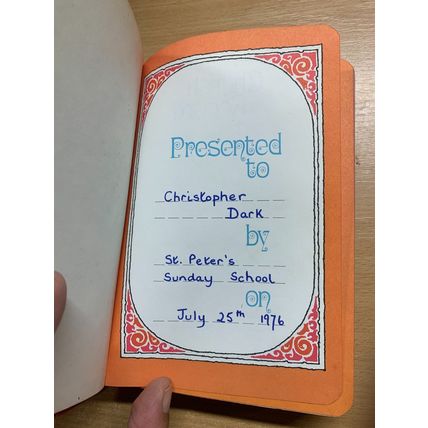 Presented
to
Christopher
Dark
by
St. Peter's
Sunday School
on
July 25th 1976